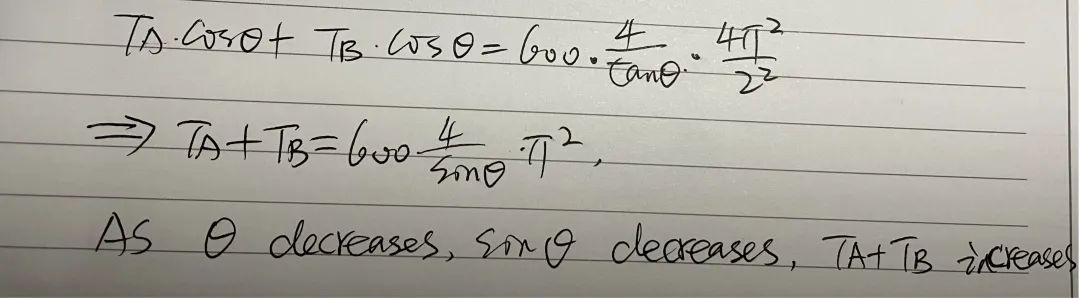 T_A·cosθ + T_B·cosθ = 600·\frac{4}{tanθ}·\frac{4π²}{2²}
⇒ T_A + T_B = 600 \frac{4}{sinθ}·π²,
As θ decreases, sinθ decreases, T_A + T_B increases